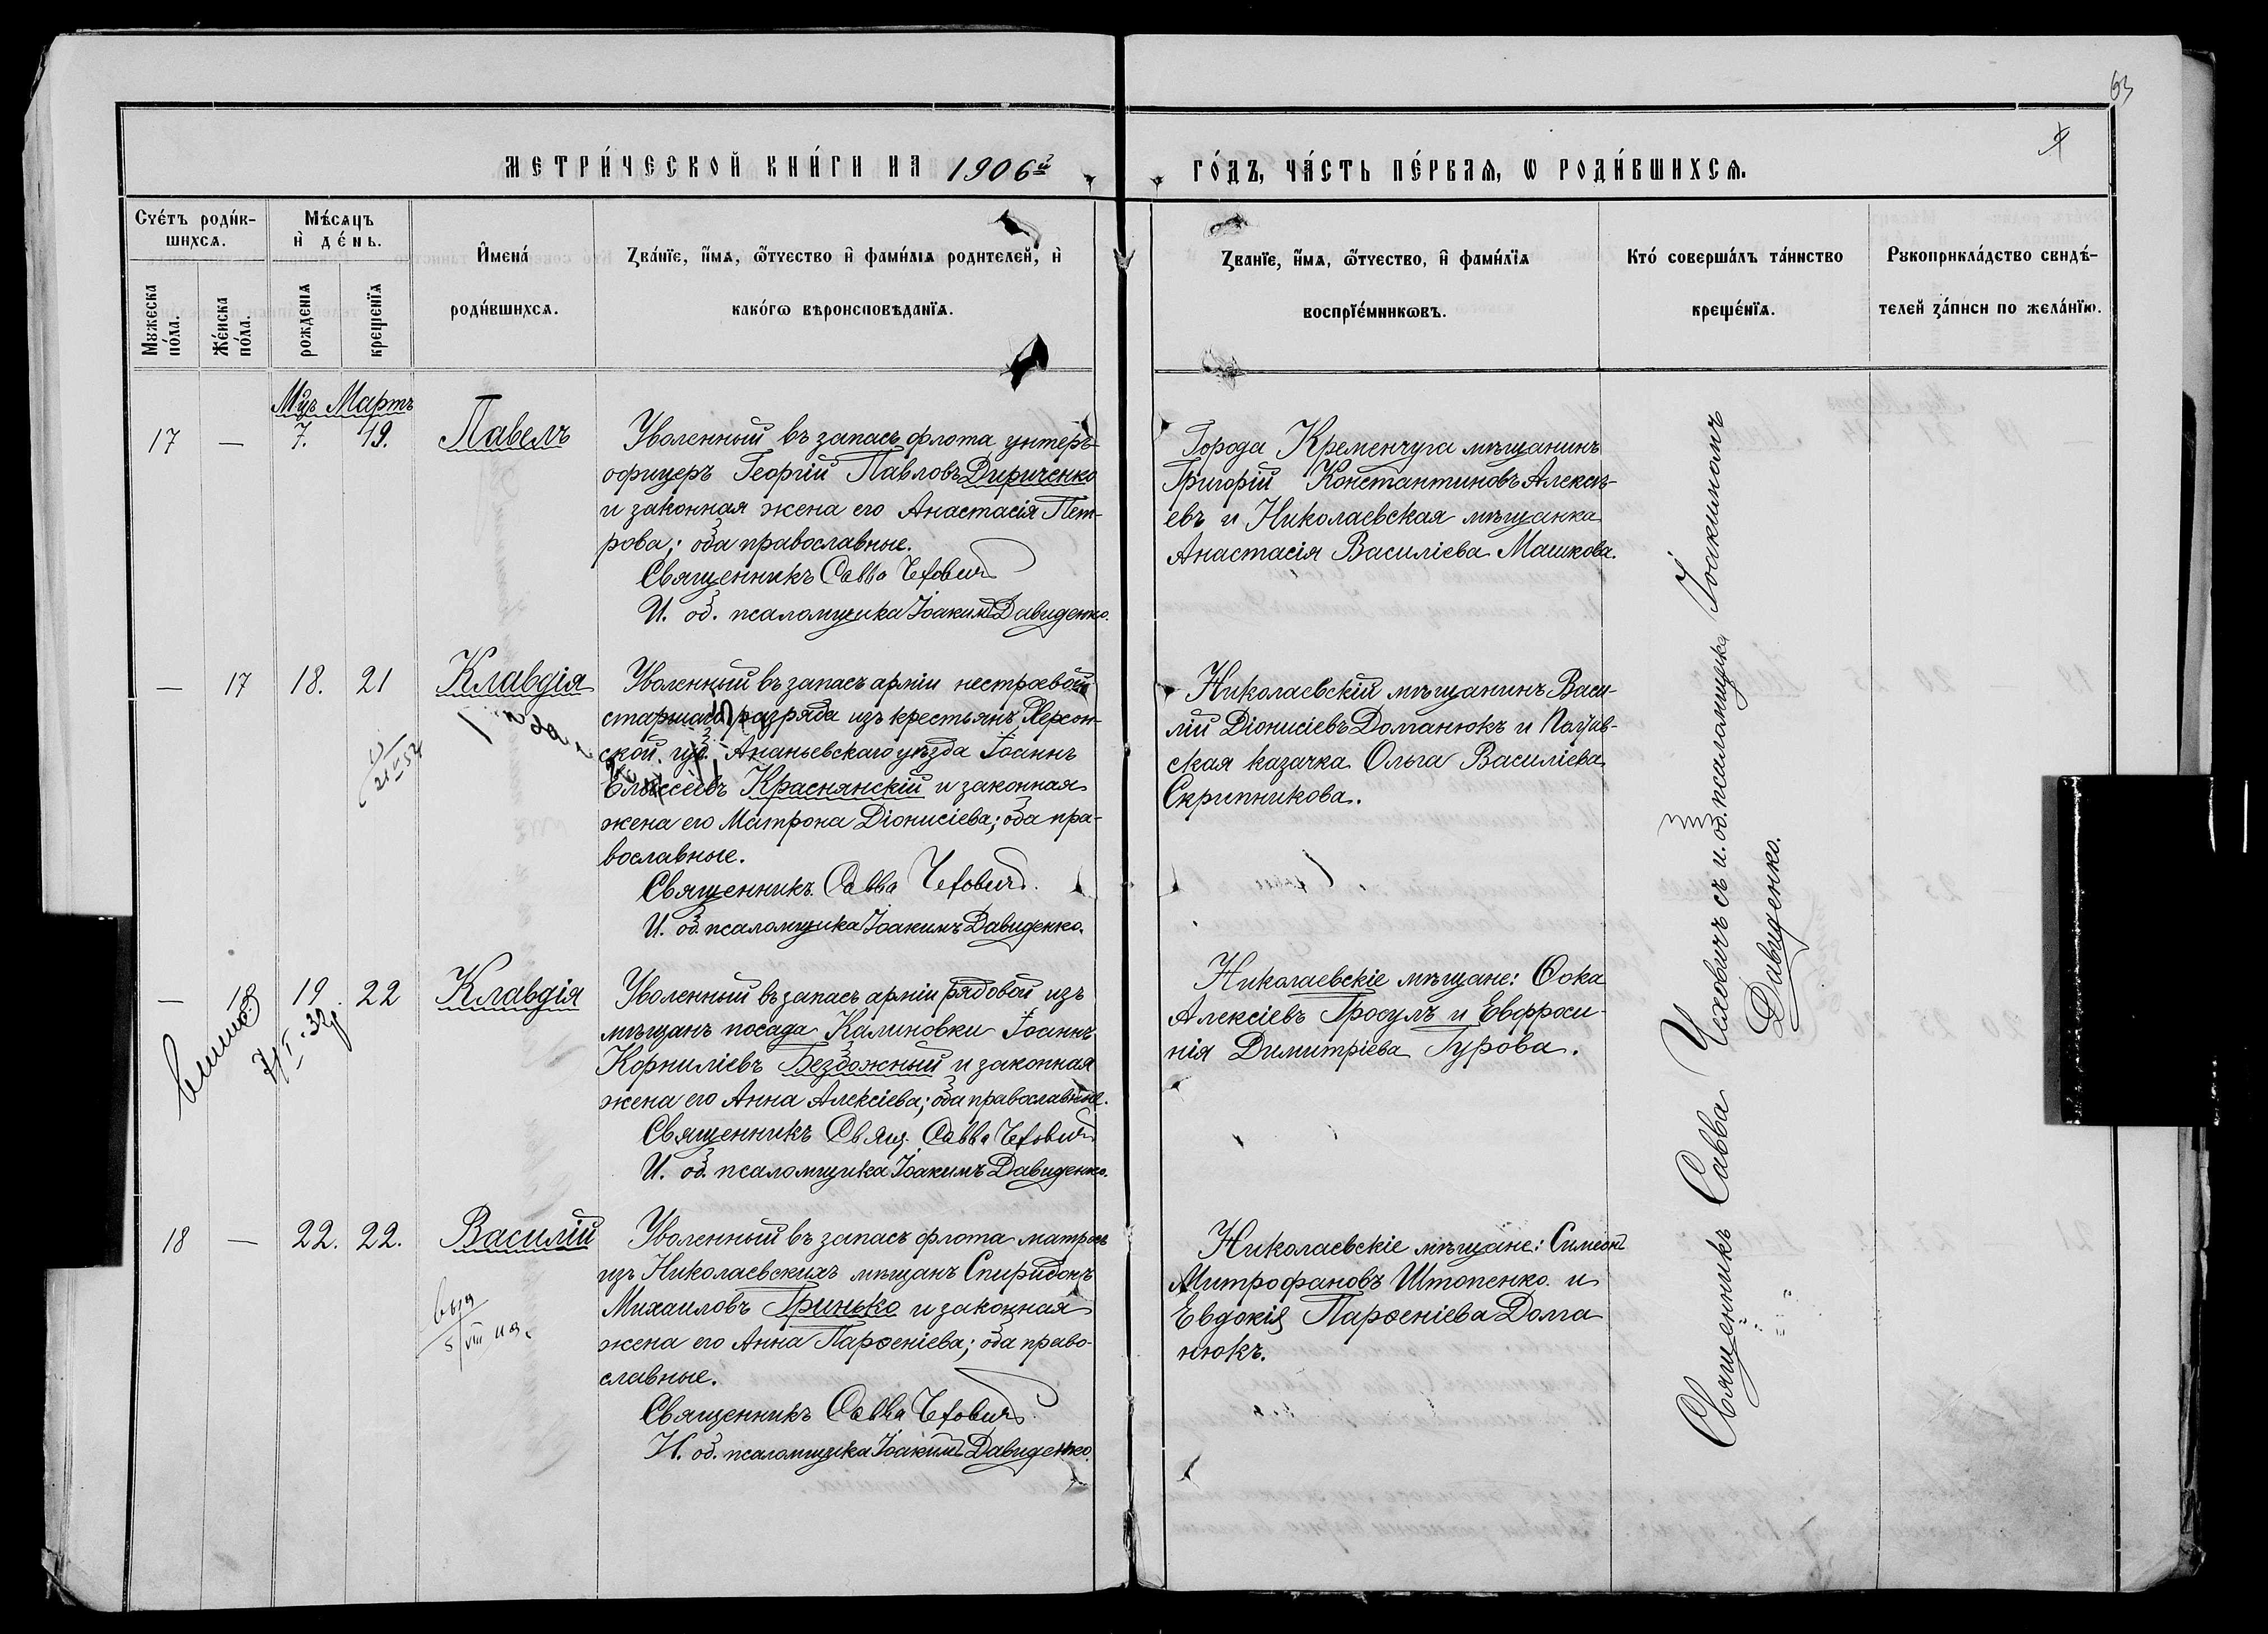 63
МЕТРИ́ЧЕСКОЙ КНИ́ГИ НА 1906й
ГО́ДЪ, ЧА́СТЬ ПЕ́РВАѦ, Ѡ РОДИ́ВШИХСѦ.
Счéтъ роди́в-
шихсѧ.
Мѣ́сѧцъ
и҆ де́нь.
И҆мена́
роди́вшихсѧ.
Зва́нїе, и҆́мѧ, ѻ҆́тчество и҆ фами́лїѧ родителей, и҆
како́гѡ вѣроисповѣданїѧ.
Мꙋжеска
по́ла.
Же́нска
по́ла.
рожденїѧ
крещенїѧ
Званїе, и҆́мѧ, ѻ҆́тчество, и҆ фами́лїѧ
воспрїе́мникѡвъ.
Кто́ соверша́лъ та́инство
креще́нїѧ.
Рꙋкоприкла́дство свидѣ́-
телей за́писи по жела́нїю.
Мцъ Мартъ
17 — 7. 19. Павелъ
Уволенный въ запасъ флота унтеръ-
офицеръ Георгій Павловъ Дириченко
и законная жена его Анастасія Пет-
рова; оба православные.
Священникъ Савва Чехович
И. об. псаломщика Іоакимъ Давиденко.
Города Кременчуга мѣщанинъ
Григорій Константиновъ Алексѣ-
евъ и Николаевская мѣщанка
Анастасія Василіева Машкова.
— 17 18. 21 Клавдія
Уволенный въ запасъ арміи нестроевой
старшаго разряда изъ крестьянъ Херсон-
ской губ. Ананьевскаго уѣзда Іоаннъ
Елисеевъ Краснянскій и законная
жена его Матрона Діонисіева; оба пра-
вославные.
Священникъ Савва Чехович.
И. об. псаломщика Іоакимъ Давиденко.
Николаевскій мѣщанинъ Васи-
лій Діонисіевъ Долганюкъ и Полтав-
ская казачка Ольга Василіева
Скрипникова.
— 18 19. 22 Клавдія
Уволенный въ запасъ арміи рядовой изъ
мѣщанъ посада Калиновки Іоаннъ
Корниліевъ Безбожный и законная
жена его Анна Алексіева; оба православные.
Священникъ Свящ. Савва Чехович
И. об. псаломщика Іоакимъ Давиденко.
Николаевскіе мѣщане: Ѳока
Алексіевъ Гросулъ и Евфроси-
нія Димитріева Гурова.
18 — 22. 22. Василій
Уволенный въ запасъ флота матросъ
изъ Николаевскихъ мѣщанъ Спиридонъ
Михаиловъ Гринько и законная
жена его Анна Парѳеніева; оба право-
славные.
Священникъ Савва Чехович.
И. об. псаломщика Іоакимъ Давиденко.
Николаевскіе мѣщане: Симеонъ
Митрофановъ Штопенко и
Евдокія Парѳеніева Долга
нюкъ.
Священникъ Савва Чеховичъ съ и. об. псаломщика Іоакимомъ
Давиденко.